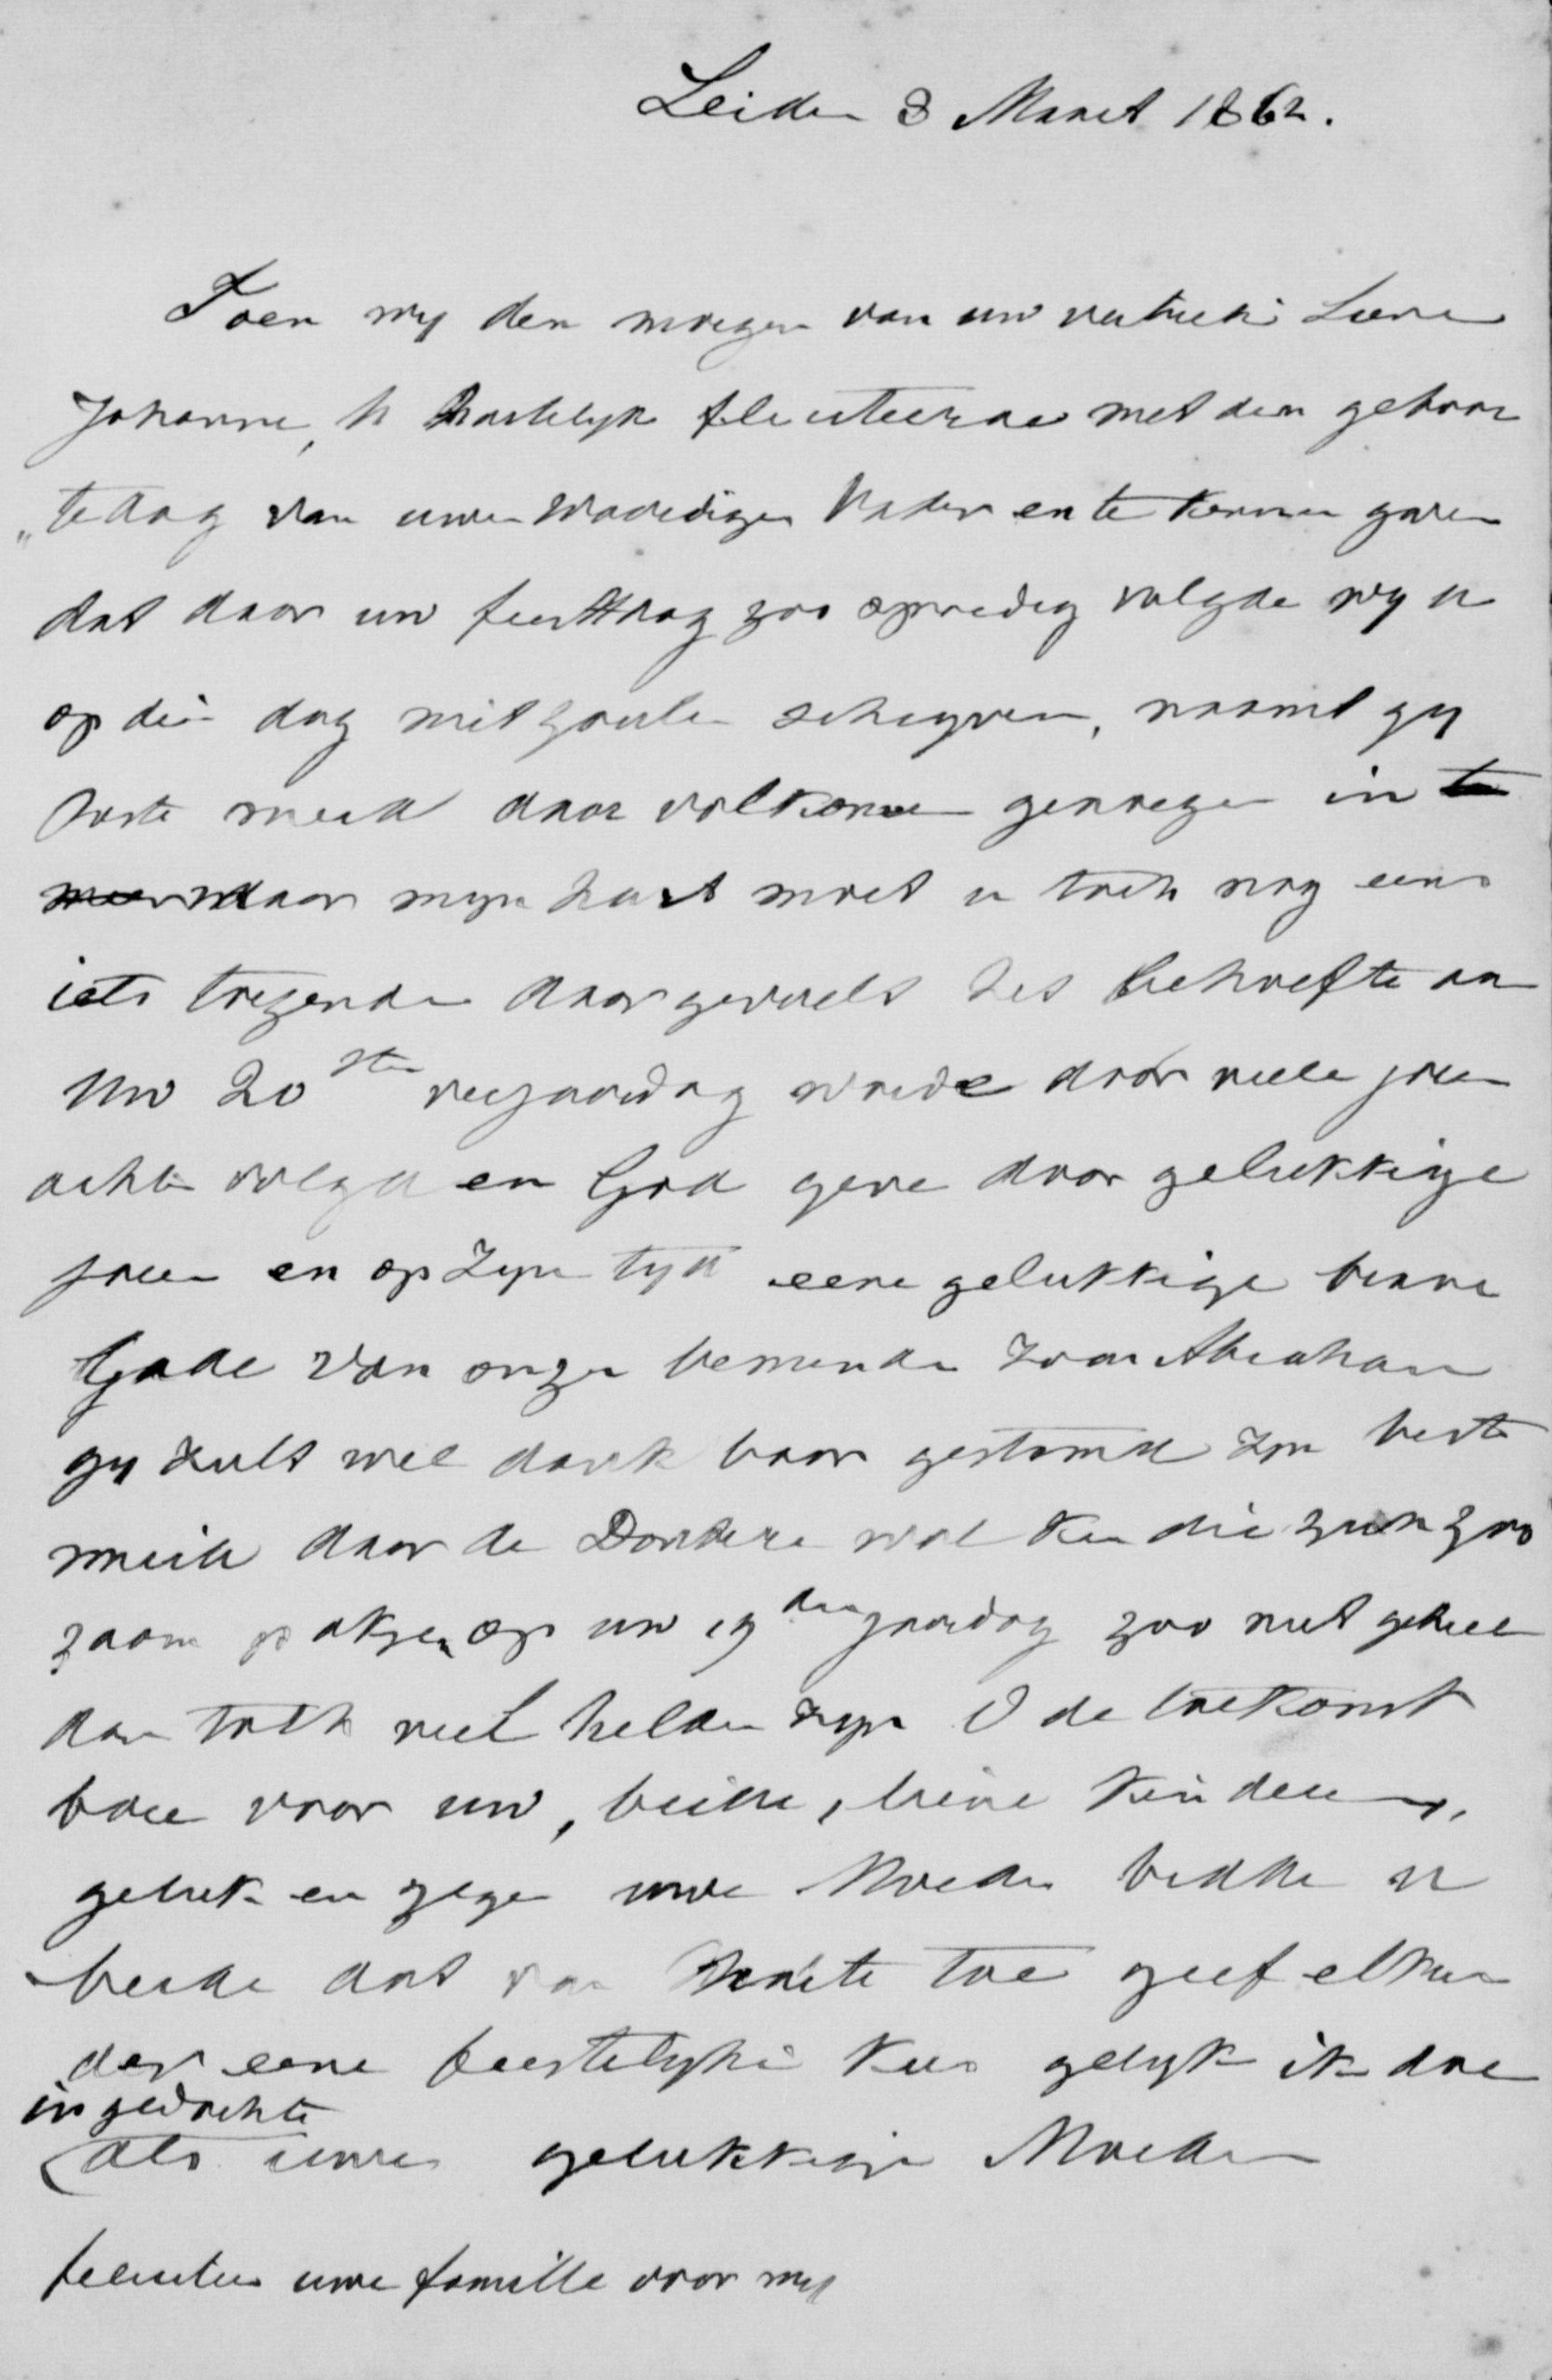 Leiden 8 Maart 1862.
Toen wy den morgen van uw vertrek Lieve
Johanna, U hartelyk feliciteerde met den geboor
„tedag van uwen waardigen Vader en te kennen gaven
dat daar uw feestdag zoo spoedig volgde wy u
op dien dag niet zouden schryven, naamt gy
beste meid daar volkomen genoegen in
maar myn hart moet u toch nog eens
iets toezenden daar gevoelt het behoefte aan
Uw 20ste verjaardag worde door vele jaren
achtervolgd en God geve door gelukkige
jaren en op Zyn tyd eene gelukkige brave
Gade van onzen beminden Zoon Abraham
gy zult wel dankbaar gestemd zyn beste
meid daar de Donkere wolken die zich zoo
zaam pakten op uw 19den jaardag zoo niet geheel
dan toch veel helder zyn O de toekomst
bare voor uw, beide, lieve kinderen,
geluk en zegen uwe Moeder bidde u
beide dat van harte toe geef elkan
der eene feestelyke kus gelyk ik doe
in gedachte
als uwe gelukkige Moeder
feliciteer uwe famille voor my